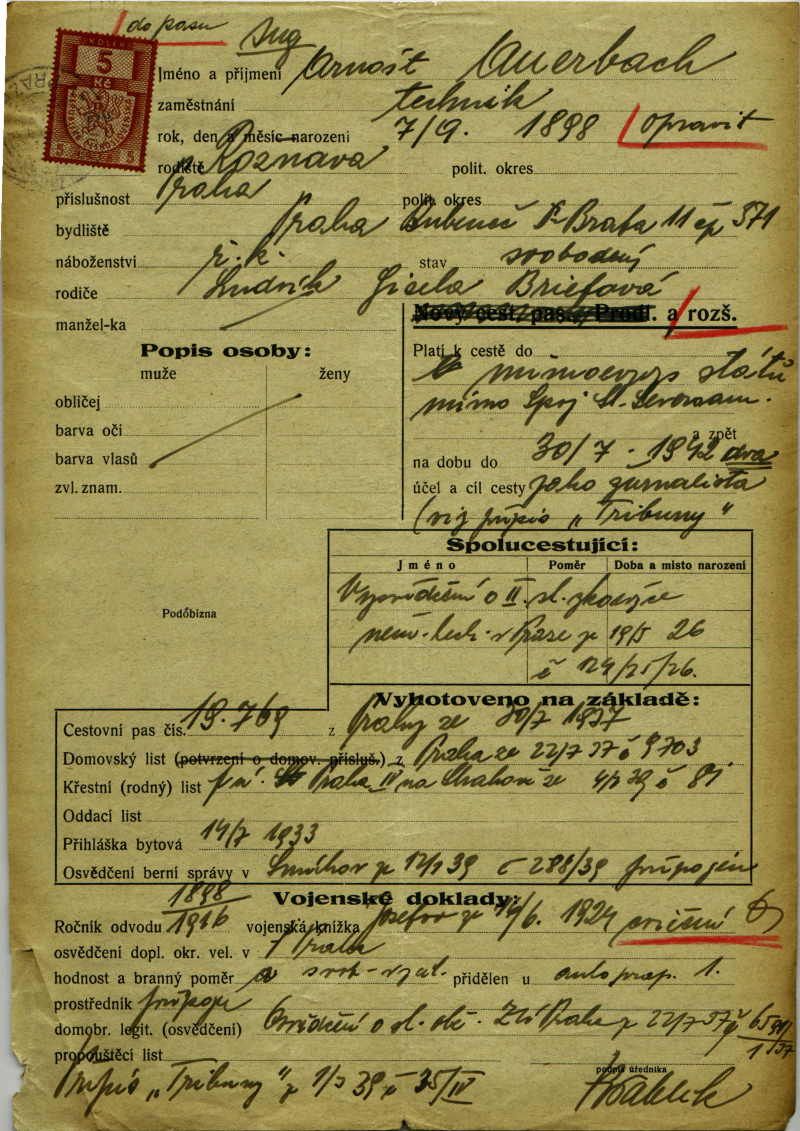 do pasu
Ing
KOLEK
5
Kč
Jméno a přijmení Arnošt Auerbach
zaměstnání technik
rok, den a měsíc narození 7/9. 1898 opravit
rodiště Rožnava polit. okres
příslušnost Praha polit. okres
bydliště Praha Bubeneč 11 čp 571
náboženství ř. k. stav svobodený
rodiče Ludvík Gisela Briefová
manžel-ka
Nový cest. pas. Prodl. a rozš.
Popis osoby:
muže ženy
obličej
barva očí
barva vlasů
zvl. znam.
Platí k cestě do
mimoevrops států
mimo Spoj St. Severoam.
a zpět
na dobu do 30/7 - 1942 dva
účel a cíl cesty jako žurnalista
(viz přípis „Tribuny"
Podobizna
Spolucestující:
Jméno Poměr Doba a místo narození
Vysvědčení o II. st. zkoušce
něm. tech. v Praze z 19/5 26
č 124/25/26.
Vyhotoveno na základě:
Cestovní pas čís. 19.769 z Prahy ze 30/7 1937
Domovský list (potvrzení o domov. přísluš.) z Praha ze 22/7 37 č 9703
Křestní (rodný) list Praha IV na Strahově ze č 81.
Oddací list
Přihláška bytová 14/7 1933
Osvědčení berní správy v Smíchov z 12/1 39 č 288/39 připojen
Vojenské doklady:
Ročník odvodu 1898/1916 vojenská knížka Josefov ze 14/6. 1924
osvědčení dopl. okr. vel. v Praha
hodnost a branný poměr přidělen u auto prap. 1.
prostředník
domobr. legit. (osvědčení) Osvědčení o Praha z 22/7 37 č
propouštěcí list
podpis úředníka
Přípis „Tribuny" z 1/3 39 č 35/IV